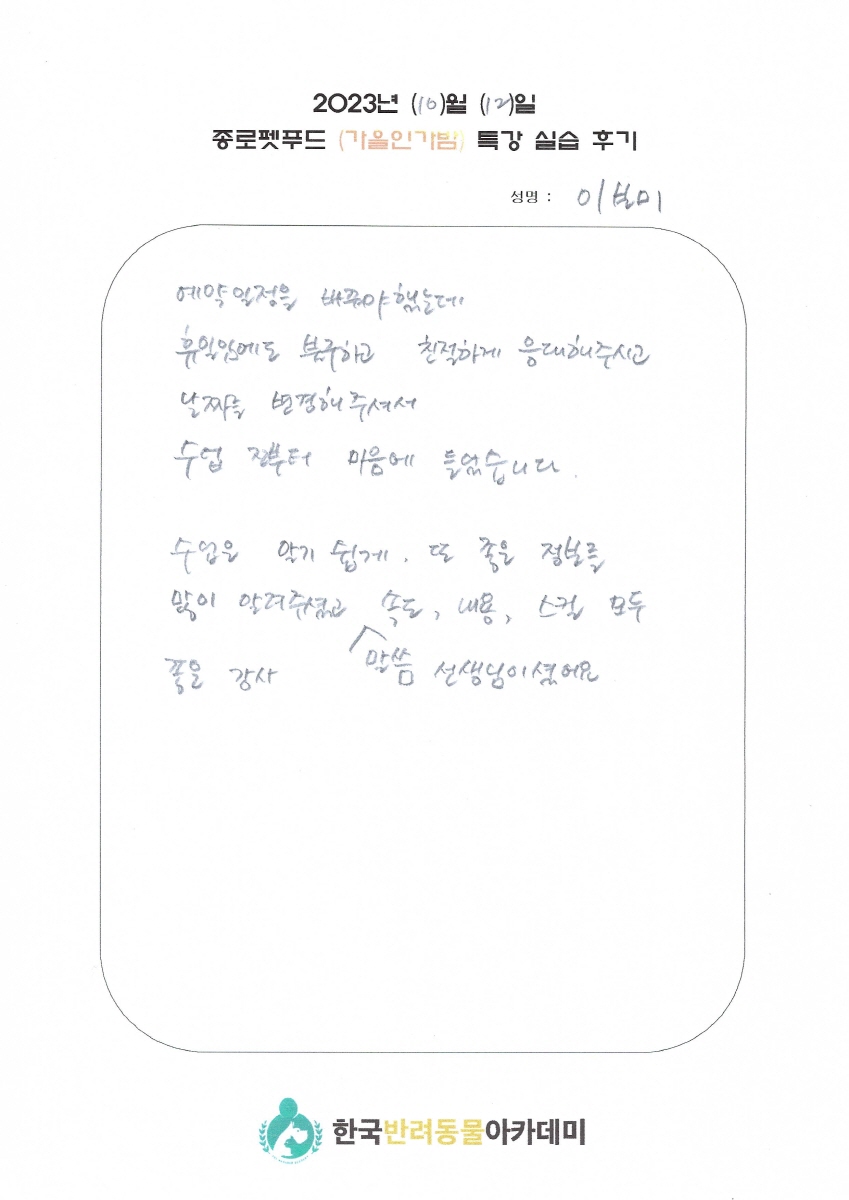 2023년 (10)월 (12)일
종로펫푸드 (가을인가밤) 특강 실습 후기
성명 : 이보미
예약일정을 바꿔야했는데
휴일임에도 불구하고 친절하게 응대해주시고
날짜를 변경해주셔서
수업 전부터 마음에 들었습니다.
수업은 알기 쉽게, 또 좋은 정보를
많이 알려주셨고 속도, 내용, 스킬 모두
말씀
좋은 강사 선생님이셨어요
한국반려동물아카데미